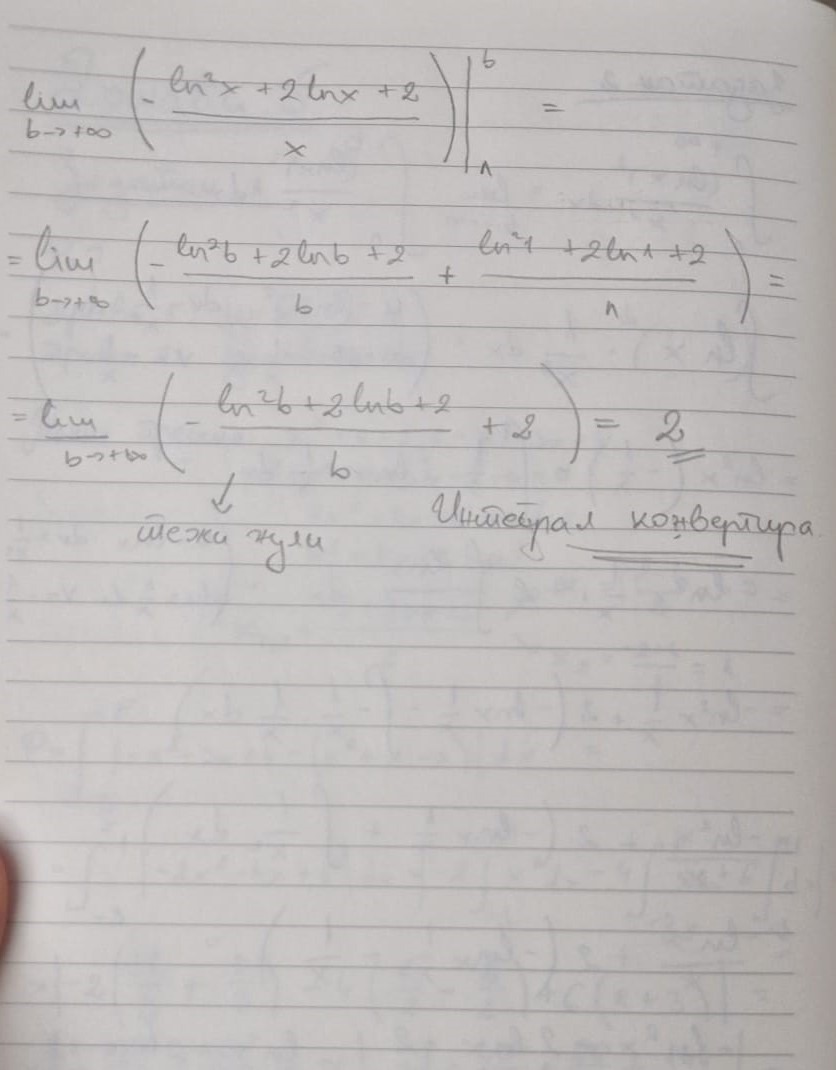 lim b→+∞ (- (ln²x + 2lnx + 2)/x) |₁ᵇ =
= lim b→+∞ (- (ln²b + 2lnb + 2)/b + (ln²1 + 2ln1 + 2)/1) =
= lim b→+∞ (- (ln²b + 2lnb + 2)/b + 2) = 2
тежи нули
Интеграл конвертира